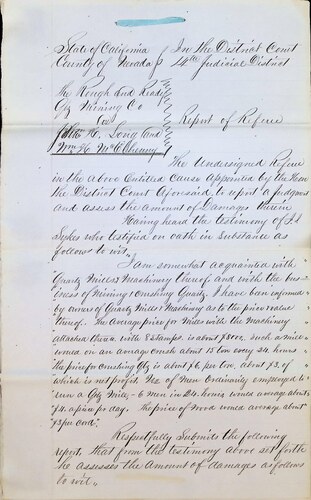 State of California } In the District Court
County of Nevada } 14th Judicial District
The Rough and Ready
Qtz Mining Co
vs
H. Long and
Wm H. McChesney
Report of Referee
The Undersigned Referee
in the above Entitled Cause Appointed by the Hon
the District Court Aforesaid, to report a judgment
and assess the amount of Damages therein
Having heard the testimony of
Sykes who testified on oath in Substance as
follows to wit.
"I am somewhat acquainted with
Quartz Mills & Machinery thereof and with the bus
iness of Mining & Crushing Quartz. I have been informed
by owners of Quartz Mills & Machinery as to the price & value
thereof. The Average price for Mills with the Machinery
attached thereto with 8 Stamps is about $8000. Such a mill
would on an average crush about 15 tons every 24 hours
the price for crushing Qtz is about $6 per ton, about $3. of
which is net profit. No. of Men Ordinarily employed to
run a Qtz Mill, 6 men in 24 hours would average about
$4. apiece per day. The price of Wood would average about
$3 per cord."
Respectfully Submits the following
report, that from the testimony above set forth
he assesses the Amount of damages as follows
to wit.